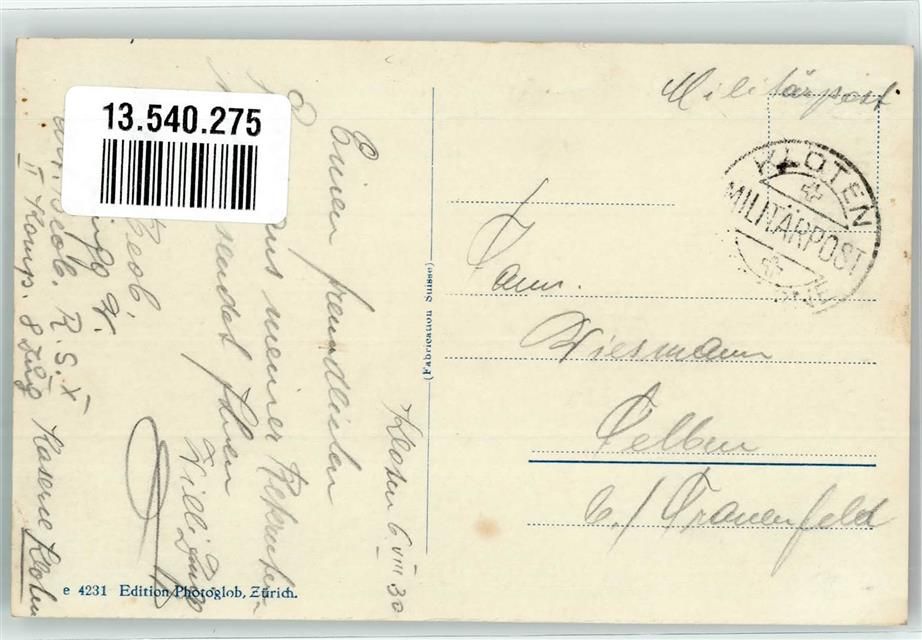 13.540.275
Militärpost
KLOTEN
MILITÄRPOST
Fam.
Wiesmann
Felben
b./ Frauenfeld
(Fabrication Suisse)
Kloten 6. VIII 30
Einen freundlichen
aus meiner Rekruten
sendet Ihnen
Willi
Beob.
Beob. R. S. X
II Komp. 8 Zug Kaserne Kloten
e 4231 Edition Photoglob, Zürich.